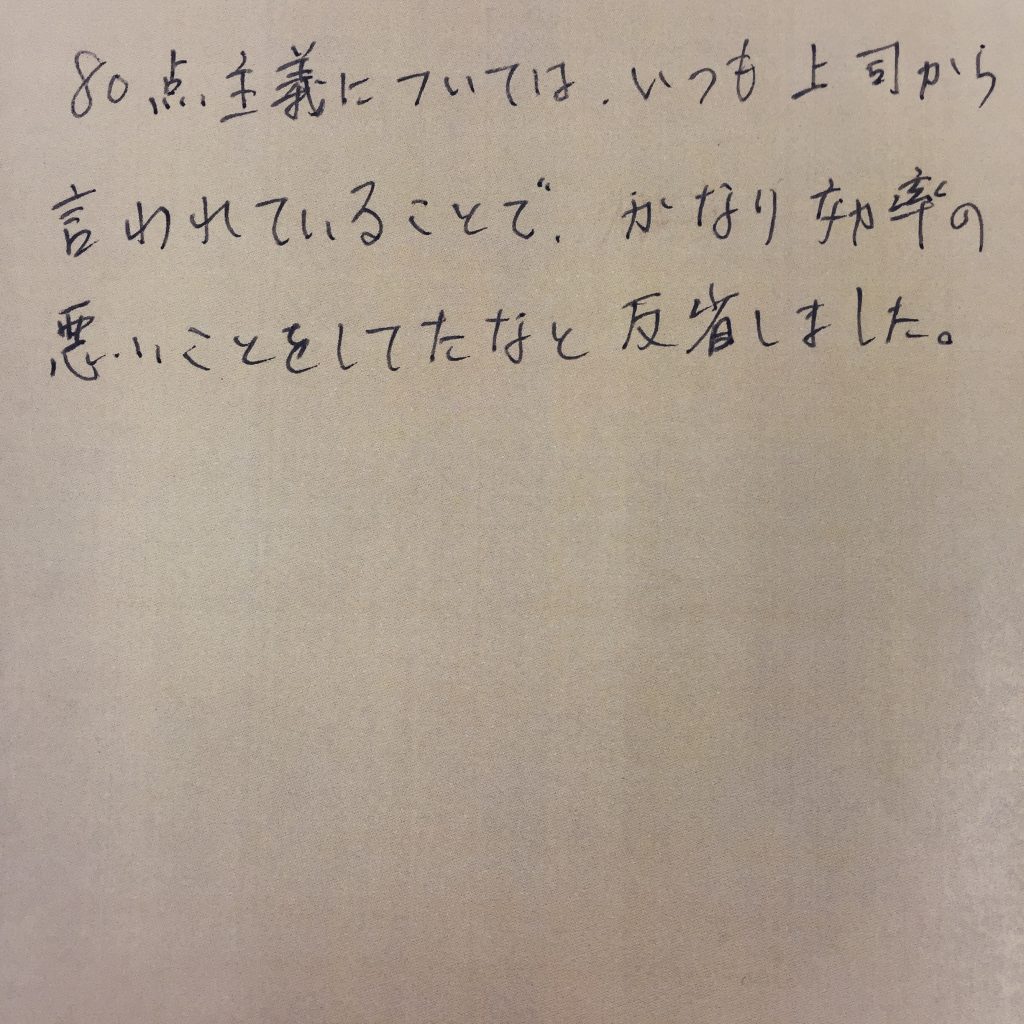 80点主義については、いつも上司から
言われていることで、かなり効率の
悪いことをしてたなと反省しました。